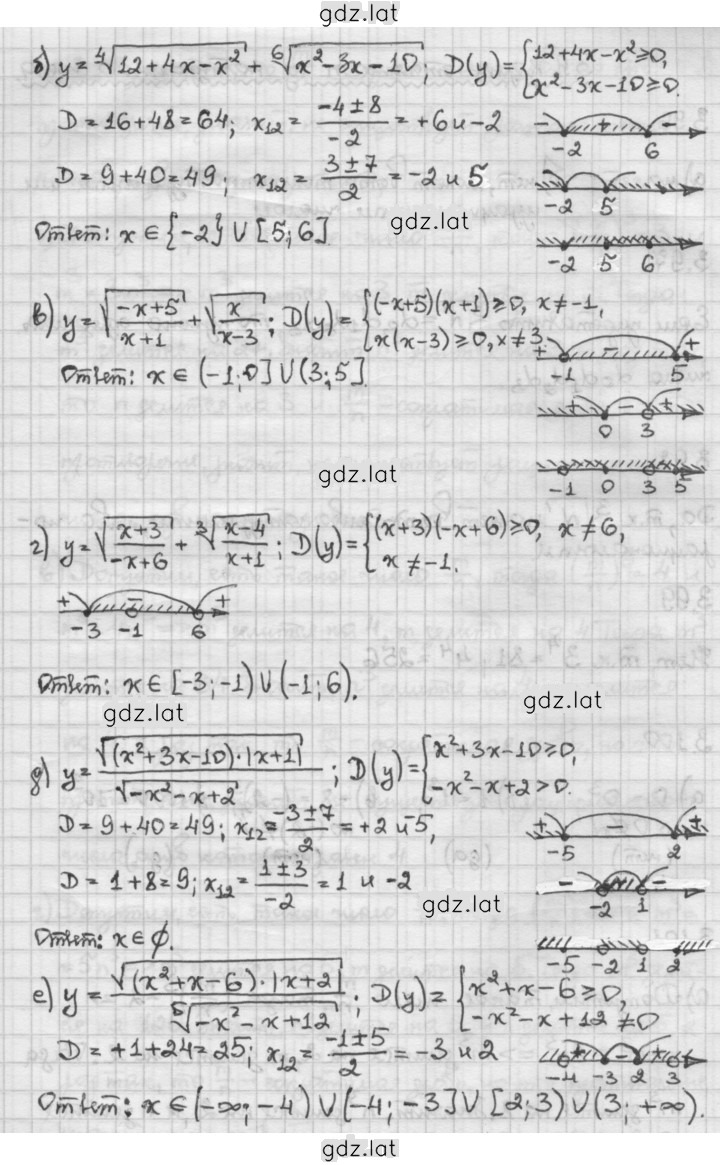 gdz.lat
б) y = ⁴√(12+4x−x²) + ⁶√(x²−3x−10); D(y) = {12+4x−x² ≥ 0,
x²−3x−10 ≥ 0.
D = 16+48 = 64; x₁₂ = (−4±8)/(−2) = +6 и −2
− + −
−2 6
D = 9+40 = 49; x₁₂ = (3±7)/2 = −2 и 5
−2 5
gdz.lat
Ответ: x ∈ {−2} ∪ [5; 6]
−2 5 6
в) y = √((−x+5)/(x+1)) + √(x/(x−3)); D(y) = {(−x+5)(x+1) ≥ 0, x ≠ −1,
x(x−3) ≥ 0, x ≠ 3.
+ − +
−1 5
Ответ: x ∈ (−1; 0] ∪ (3; 5].
+ − +
0 3
gdz.lat
−1 0 3 5
г) y = √((x+3)/(−x+6)) + ³√((x−4)/(x+1)); D(y) = {(x+3)(−x+6) ≥ 0, x ≠ 6,
x ≠ −1.
+ − +
−3 −1 6
Ответ: x ∈ [−3; −1) ∪ (−1; 6).
gdz.lat
gdz.lat
д) y = √((x²+3x−10)·|x+1|) / √(−x²−x+2); D(y) = {x²+3x−10 ≥ 0,
−x²−x+2 > 0.
D = 9+40 = 49; x₁₂ = (−3±7)/2 = +2 и −5,
+ − +
−5 2
D = 1+8 = 9; x₁₂ = (1±3)/(−2) = 1 и −2
− −
−2 1
gdz.lat
Ответ: x ∈ ∅.
−5 −2 1 2
е) y = √((x²+x−6)·|x+2|) / ⁵√(−x²−x+12); D(y) = {x²+x−6 ≥ 0,
−x²−x+12 ≠ 0
D = +1+24 = 25; x₁₂ = (−1±5)/2 = −3 и 2
+ − +
−4 −3 2 3
Ответ: x ∈ (−∞; −4) ∪ (−4; −3] ∪ [2; 3) ∪ (3; +∞).
gdz.lat